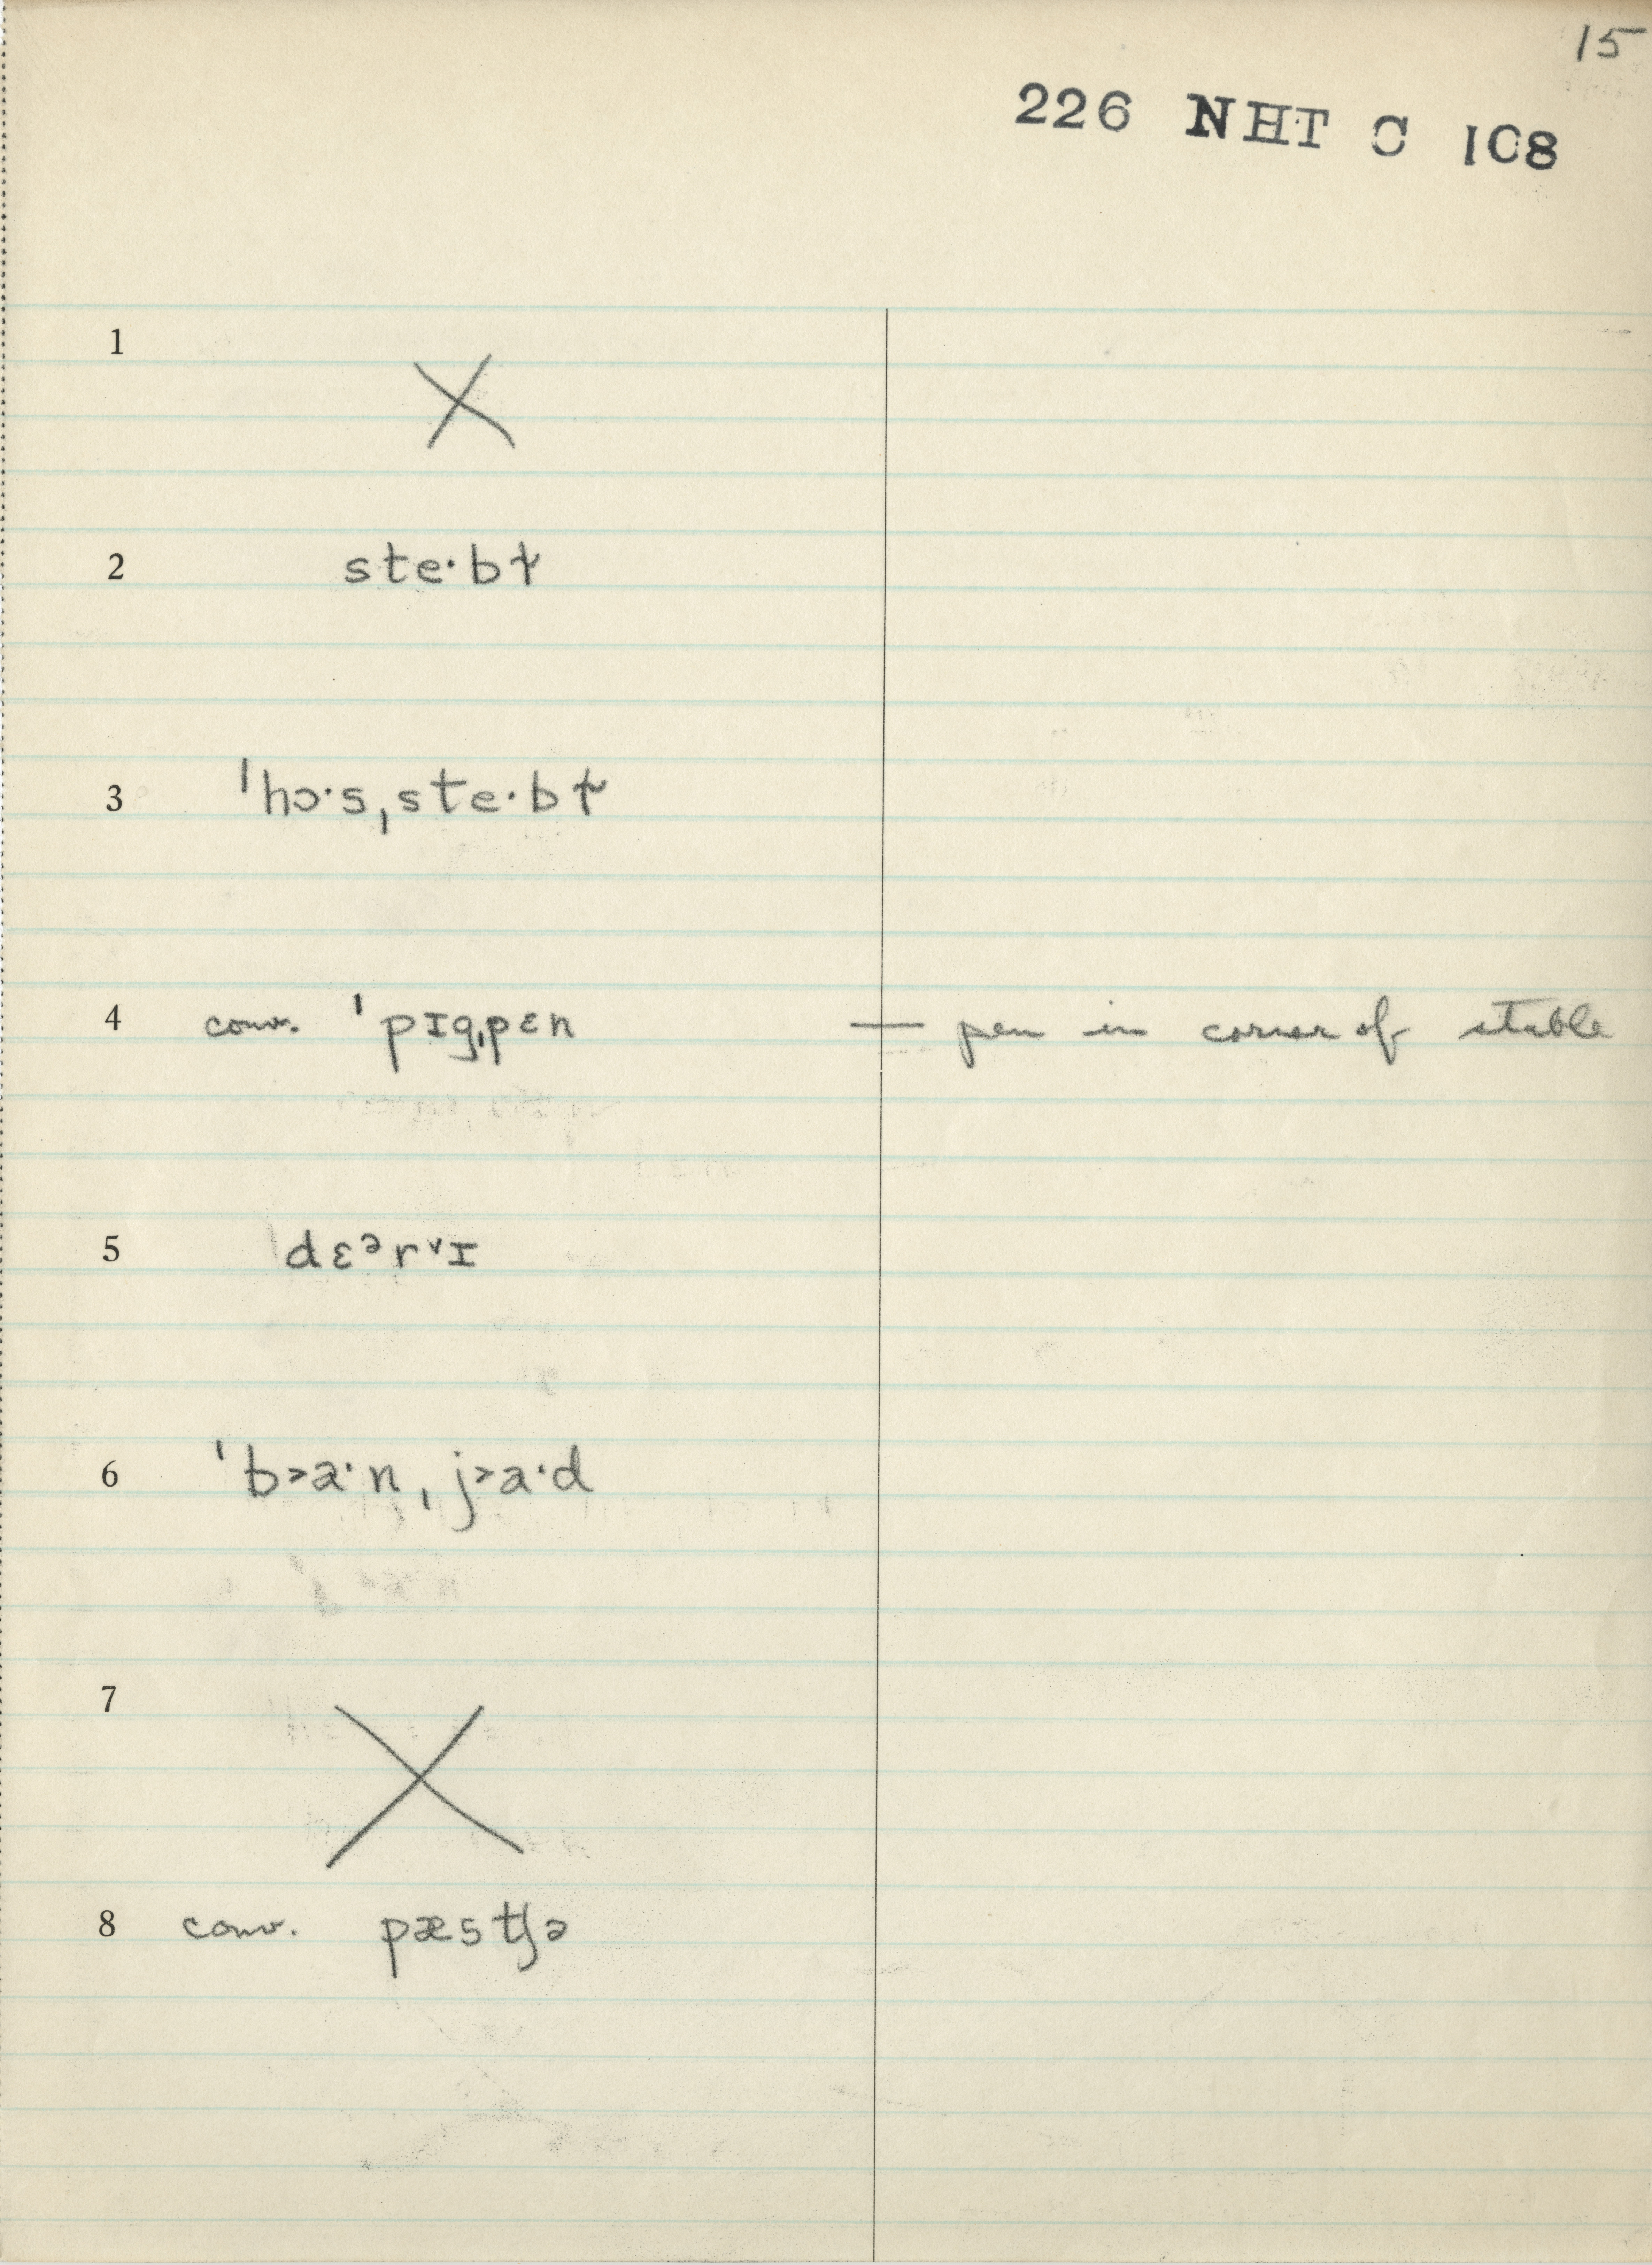 15
226 NHT C 108
1 X
2 ste·bɫ
3 ˈhɔ·sˌste·bɫ
4 conv. ˈpɪgˌpɛn — pen in corner of stable
5 dɛᵊr˅ɪ
6 ˈb˃a·nˌj˃a·d
7 X
8 conv. pæstʃə